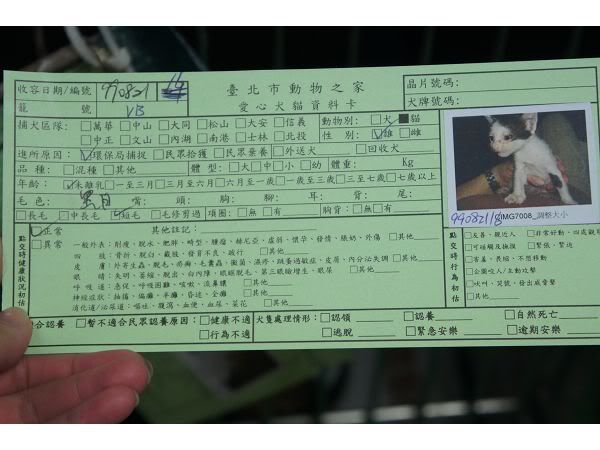 收容日期/編號 990821
臺北市動物之家
晶片號碼:
籠 號 VB
愛心犬貓資料卡
犬牌號碼:
捕犬區隊: □萬華 □中山 □大同 □松山 □大安 □信義
□中正 □文山 □內湖 □南港 □士林 □北投
動物別: □犬 ■貓
性 別: ☑雄 □雌
進所原因: ☑環保局捕捉 □民眾拾獲 □民眾棄養 □外送犬 □回收犬
品 種: □混種 □其他 體型: □大 □中 □小 □幼 體重: Kg
年齡: ☑未離乳 □一至三月 □三月至六月 □六月至一歲 □一至三歲 □三至七歲 □七歲以上
毛 色: 嘴: 頭: 胸: 腳: 耳: 背: 尾:
□長毛 □中長毛 ☑短毛 □毛修剪過 項圈: □無 □有 胸背: □無 □有
990821VB
IMG7008_調整大小
點交時健康狀況初估
☑正常 其他註記:
□異常 一般外表: 削瘦、脫水、肥胖、畸型、腫瘤、赫尼亞、虛弱、懷孕、發情、脹奶、外傷 □其他
四 肢: 骨折、脫臼、截肢、發育不良、跛行 □其他
皮 膚: 外寄生蟲、脫毛、疥癬、毛囊蟲、黴菌、濕疹、跳蚤過敏症、皮屑、內分泌失調 □其他
眼 睛: 失明、萎縮、脫出、白內障、眼瞼脫毛、第三眼瞼增生、眼屎 □其他
呼 吸 道: 急促、呼吸困難、咳嗽、流鼻膿 □其他
神經症狀: 抽搐、偏癱、半癱、昏迷、全癱 □其他
消化道/泌尿道: 嘔吐、腹瀉、血便、血尿、菜花 □其他
點交時行為初估
□友善、親近人 □非常好動、四處觀
□可碰觸及撫摸 □緊張、緊迫
□害羞、畏縮、不想移動
□企圖咬人/主動攻擊
□吠叫、哭號、發出威脅聲
□其他
合認養 □暫不適合民眾認養原因: □健康不適
□行為不適
犬隻處理情形: □認領 □認養 □自然死亡
□逃脫 □緊急安樂 □逾期安樂